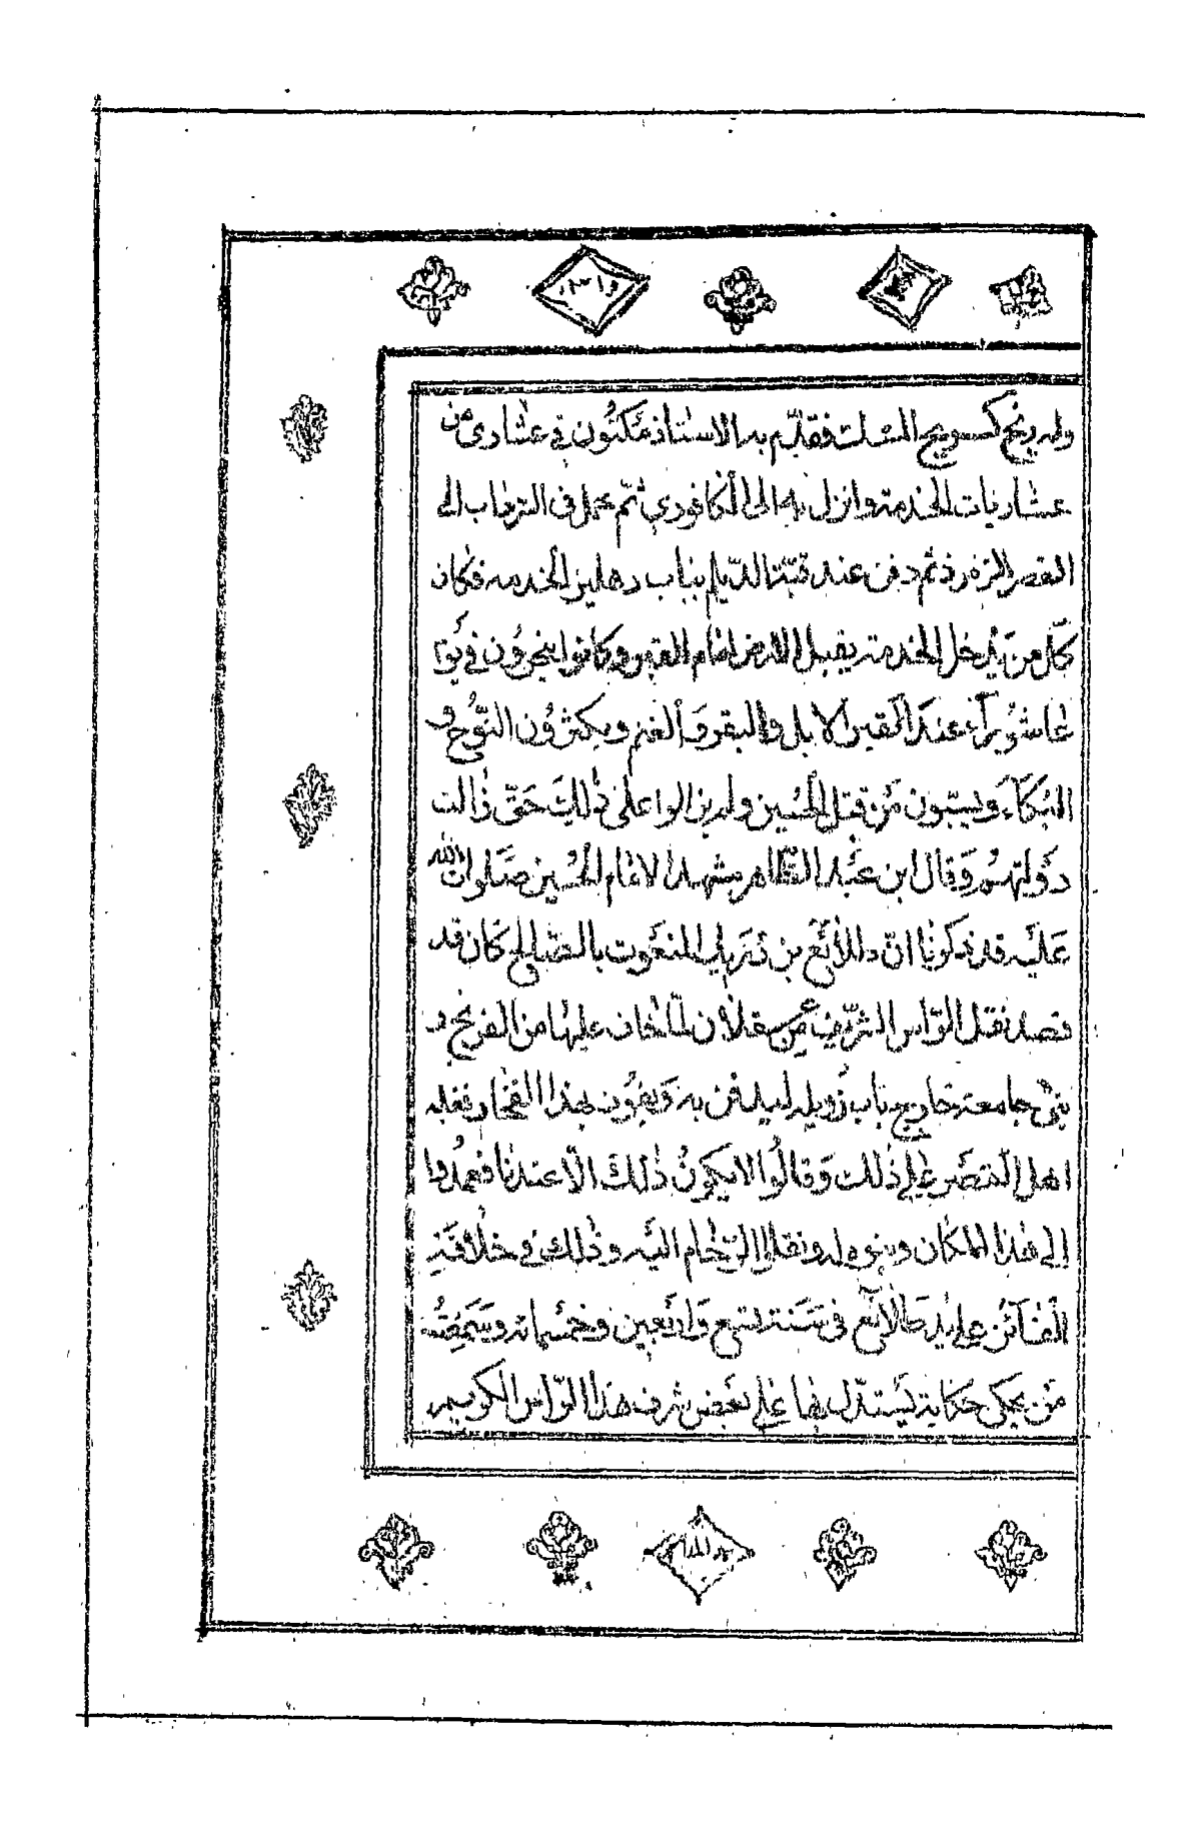 وله ريح كريح المسك فقدم به الاستاذ مكنون في عشاري من
عشاريات الخدمة وانزل به الى الكافوري ثم حمل في السرداب الى
القصر الزمرذ ثم دفن عند قبة الديلم بباب دهليز الخدمه فكان
كل من يدخل الخدمة يقبل الارض امام القبر وكانوا ينحرون في يوم
عاشوراء عند القبر الابل والبقر والغنم ويكثرون النوح و
البكاء ويسبون من قتل الحسين ولم يزالوا على ذلك حتى زالت
دولتهم وقال ابن عبد الظاهر مشهد الامام الحسين صلوات الله
عليه قد ذكرنا ان طلائع بن رزيك المنعوت بالصالح كان قد
قصد نقل الراس الشريف من عسقلان لما خاف عليها من الفرنج و
بنى جامعه خارج باب زويله ليدفن به ويفوز بهذا الفخار فغلبه
اهل القصر على ذلك وقالوا لا يكون ذلك الا عندنا فعمدوا
الى هذا المكان وبنوه له ونقلوا الرخام اليه وذلك في خلافة
الفائز على يد طلائع في سنة تسع واربعين وخمسمائه وسمعت
من يحكى حكاية يستدل بها على بعض شرف هذا الراس الكريم